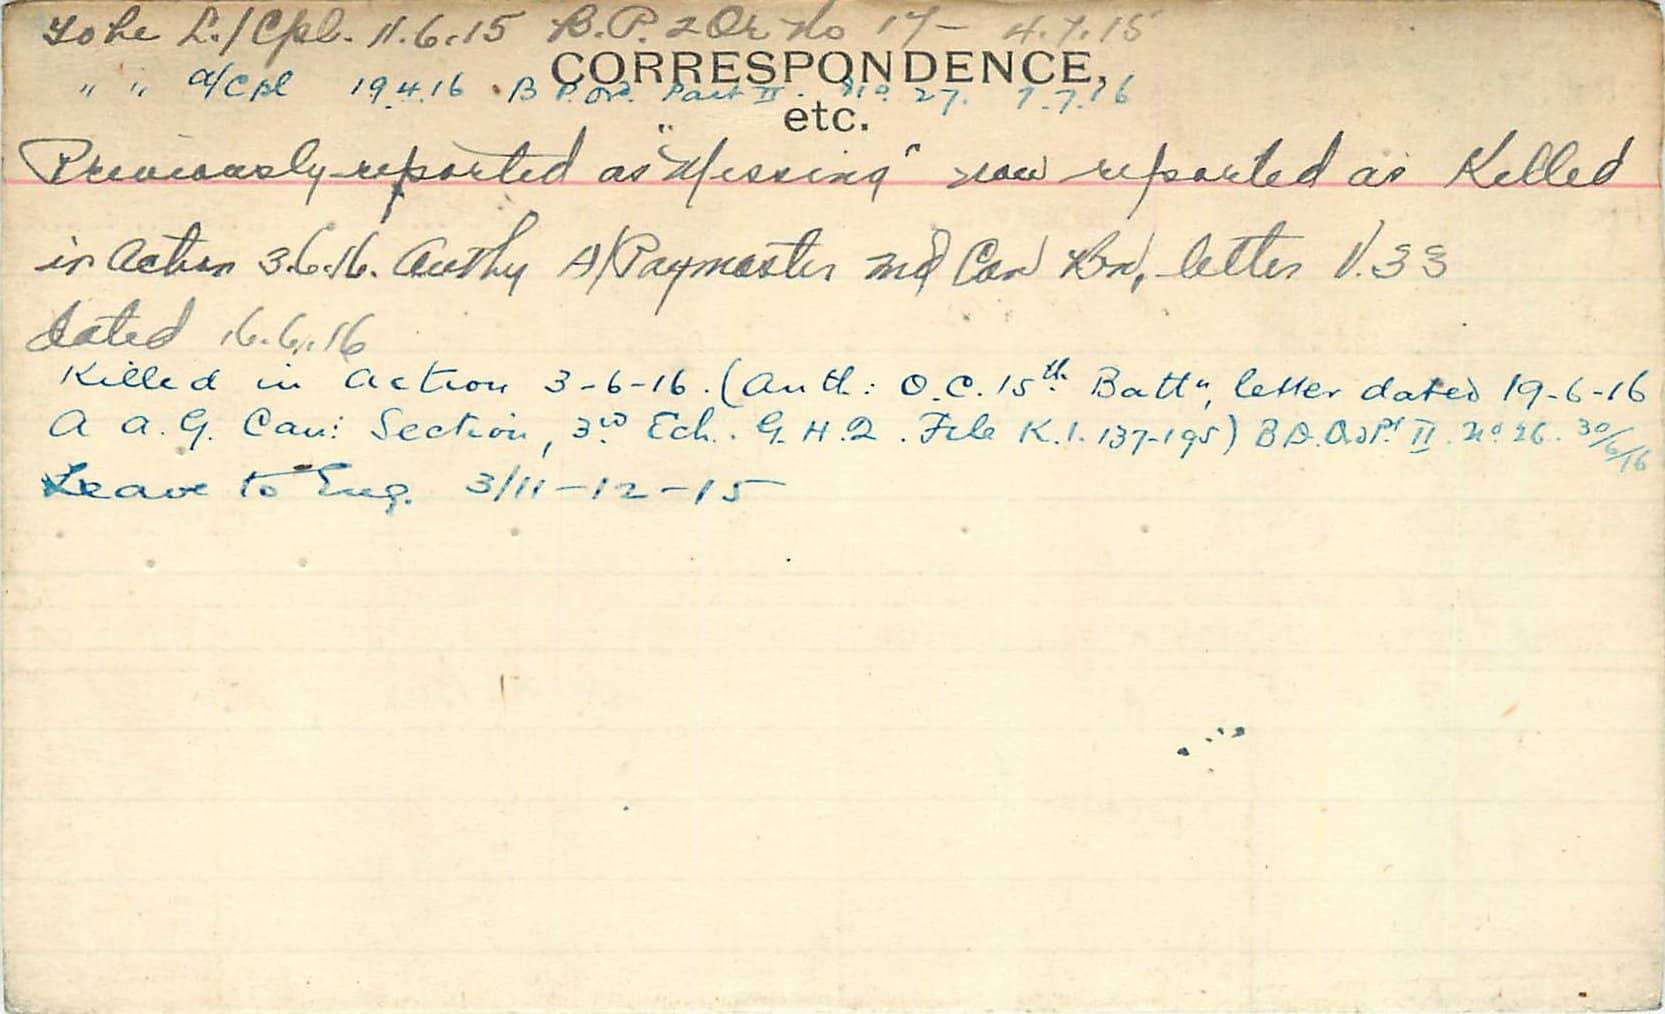 To be L./Cpl. 11.6.15 B.P. 2 Or No 17 - 4.7.15
CORRESPONDENCE,
" " a/Cpl 19.4.16 . B P. Ord. Part II. No. 27. 7.7.16
etc.
Previously reported as "Missing" now reported as Killed
in Action 3.6.16. Authy A/Paymaster 2nd Can Bn, letter V.33
dated 16.6.16
Killed in action 3-6-16. (Auth: O.C. 15th Battn, letter dated 19-6-16
A A.G. Can: Section, 3rd Ech. G.H.Q. File K.1.137-195) B.D. Ord Pt II. No 26. 30/6/16
Leave to Eng. 3/11-12-15